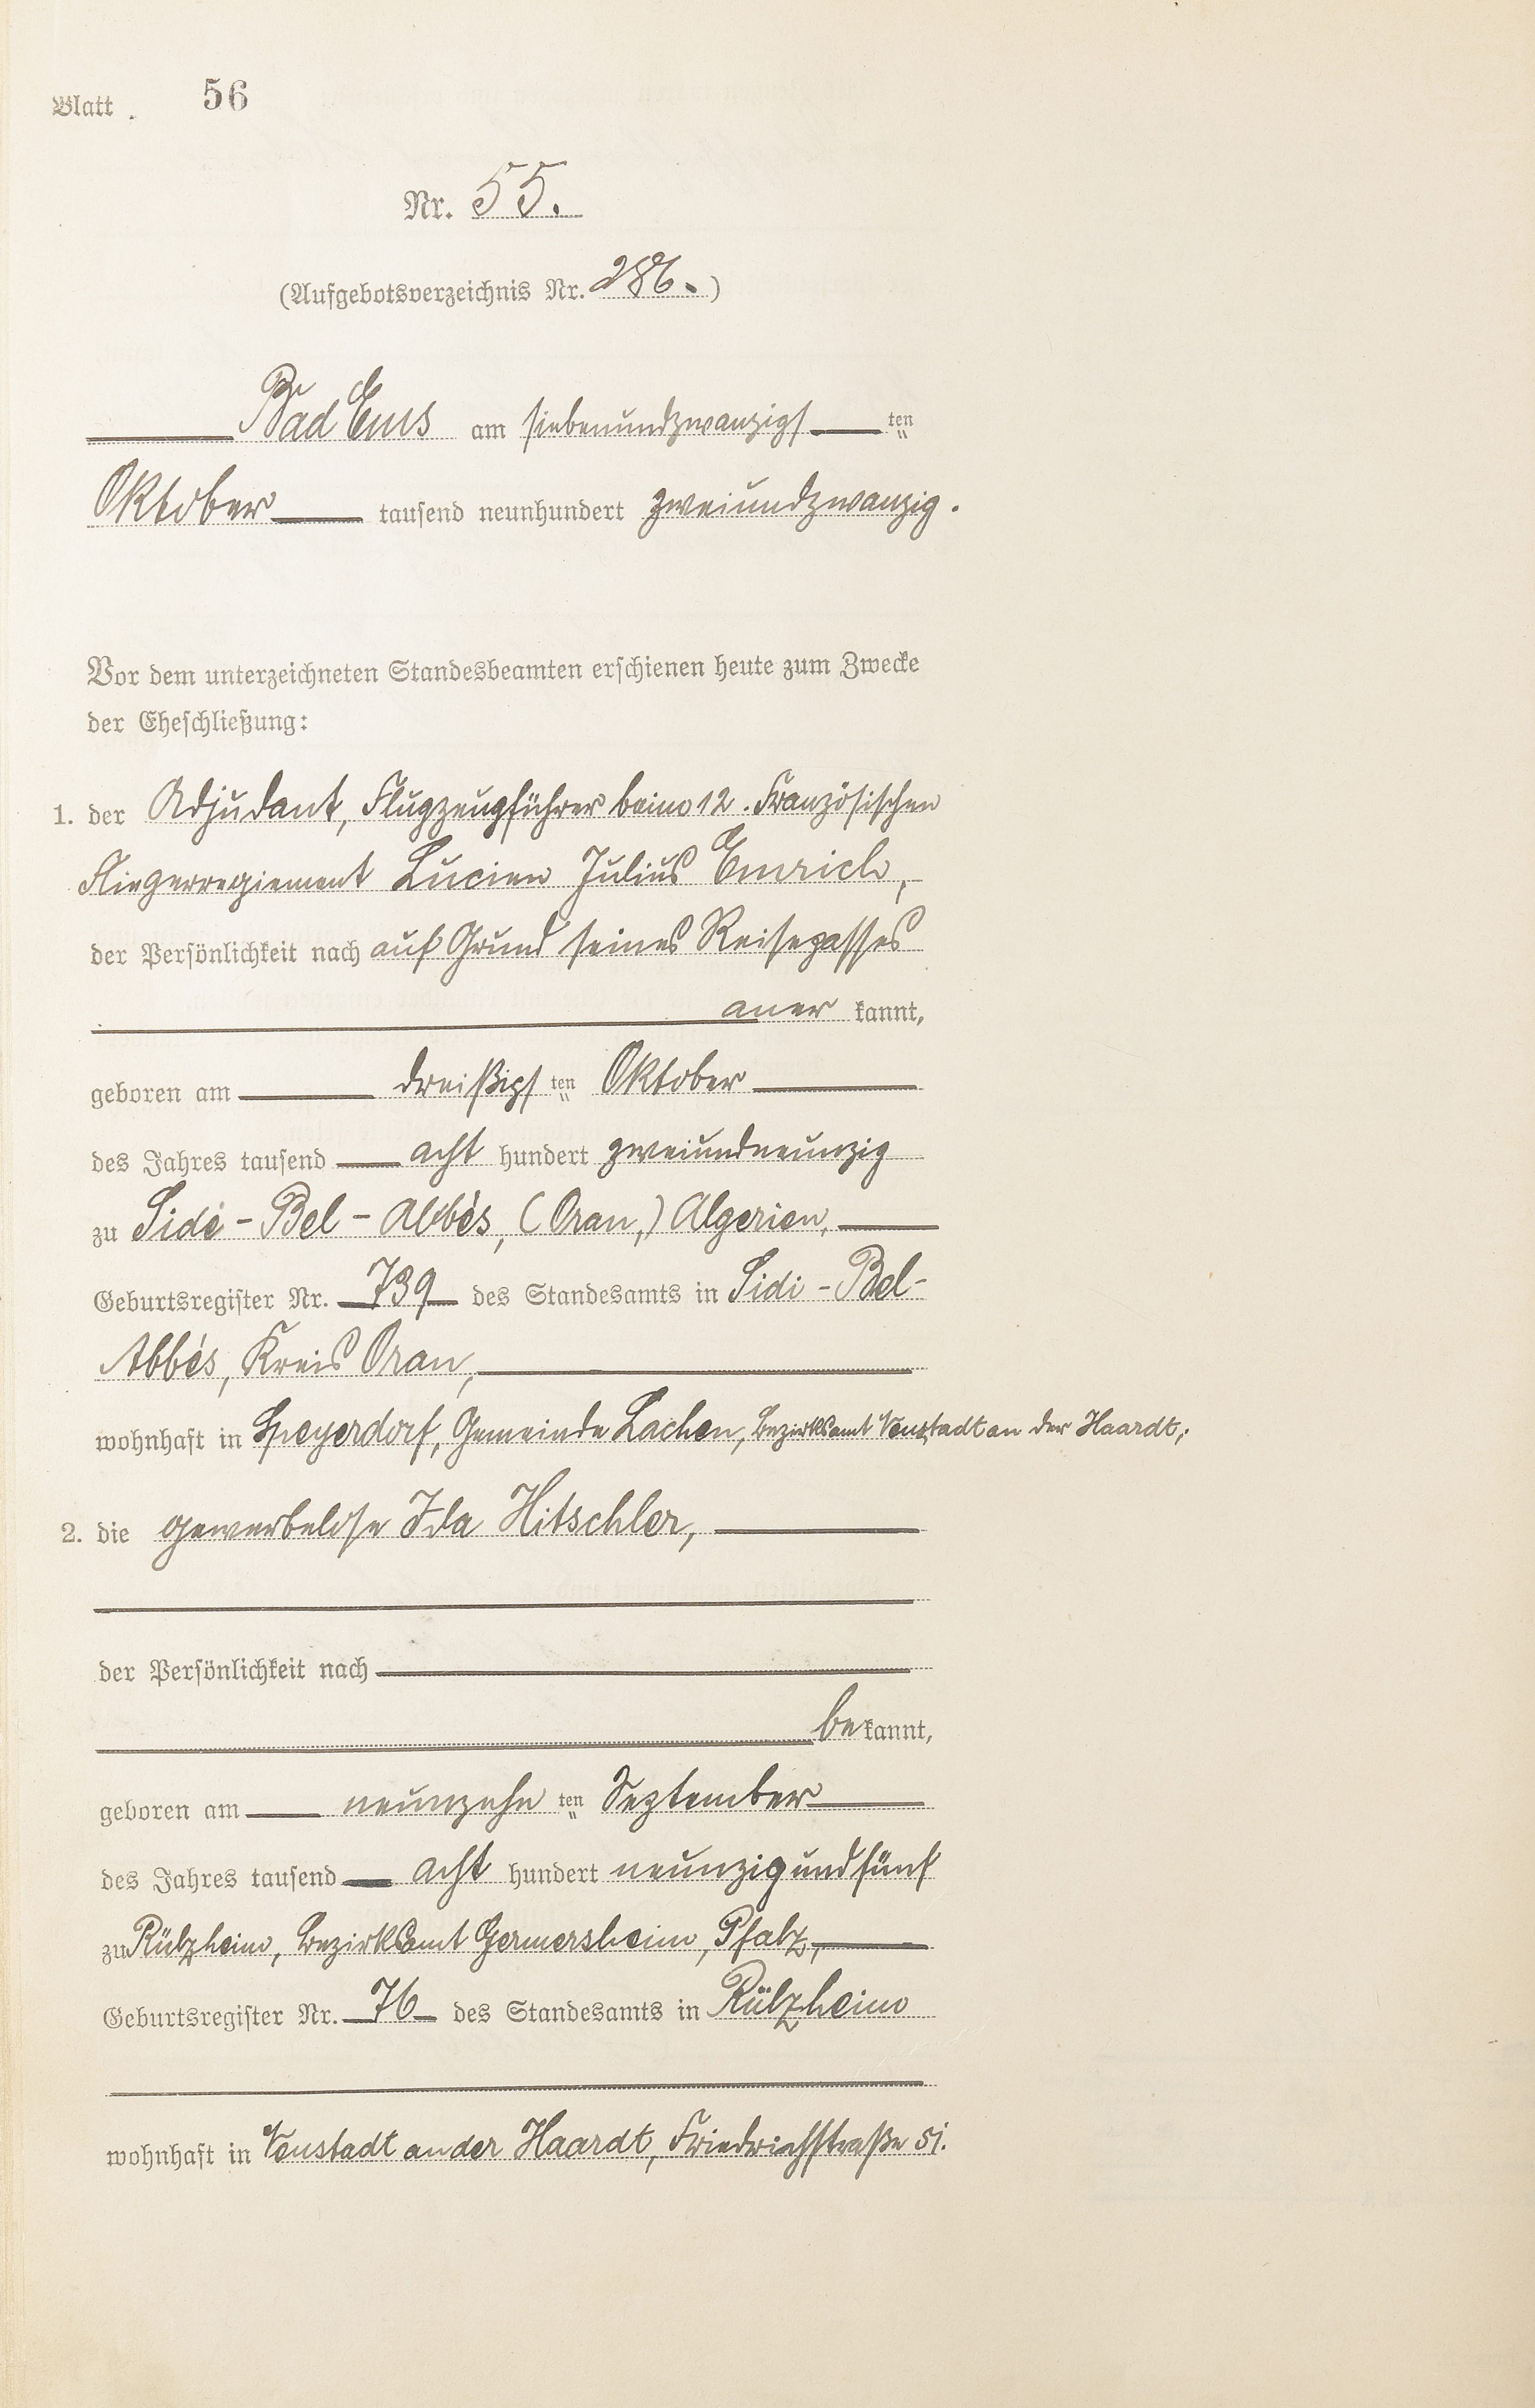 Blatt 56
Nr. 55.
(Aufgebotsverzeichnis Nr. 286.)
Bad Ems am siebenundzwanzigsten
Oktober tausend neunhundert zweiundzwanzig.
Vor dem unterzeichneten Standesbeamten erschienen heute zum Zwecke
der Eheschließung:
1. der Adjudant, Flugzeugführer beim 12. Französischen
Fliegerregiement Lucien Julius Emrich,
der Persönlichkeit nach auf Grund seines Reisepasses
aner kannt,
geboren am dreißigsten Oktober
des Jahres tausend acht hundert zweiundneunzig
zu Sidi-Bel-Abbès, (Oran,) Algerien,
Geburtsregister Nr. 739 des Standesamts in Sidi-Bel-
Abbés, Kreis Oran,
wohnhaft in Speyerdorf, Gemeinde Lachen, Bezirksamt Neustadt an der Haardt;
2. die gewerbelose Ida Hitschler,
der Persönlichkeit nach
bekannt,
geboren am neunzehnten September
des Jahres tausend acht hundert neunzigundfünf
zu Rülzheim, Bezirksamt Germersheim, Pfalz,
Geburtsregister Nr. 76 des Standesamts in Rülzheim
wohnhaft in Neustadt an der Haardt, Friedrichstraße 51.